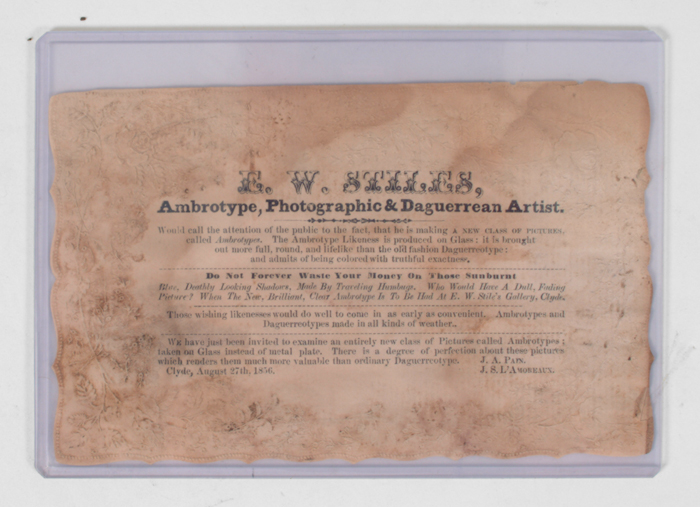 E. W. STILES,
Ambrotype, Photographic & Daguerrean Artist.
Would call the attention of the public to the fact, that he is making A NEW CLASS OF PICTURES,
called Ambrotypes. The Ambrotype Likeness is produced on Glass: it is brought
out more full, round, and lifelike than the old fashion Daguerreotype:
and admits of being colored with truthful exactness.
Do Not Forever Waste Your Money On Those Sunburnt
Blue, Deathly Looking Shadows, Made By Traveling Humbugs. Who Would Have A Dull, Fading
Picture? When The New, Brilliant, Clear Ambrotype Is To Be Had At E. W. Stile's Gallery, Clyde.
Those wishing likenesses would do well to come in as early as convenient. Ambrotypes and
Daguerreotypes made in all kinds of weather.
WE have just been invited to examine an entirely new class of Pictures called Ambrotypes;
taken on Glass instead of metal plate. There is a degree of perfection about these pictures
which renders them much more valuable than ordinary Daguerreotype. J. A. PAIN.
Clyde, August 27th, 1856. J. S. L'AMOREAUX.